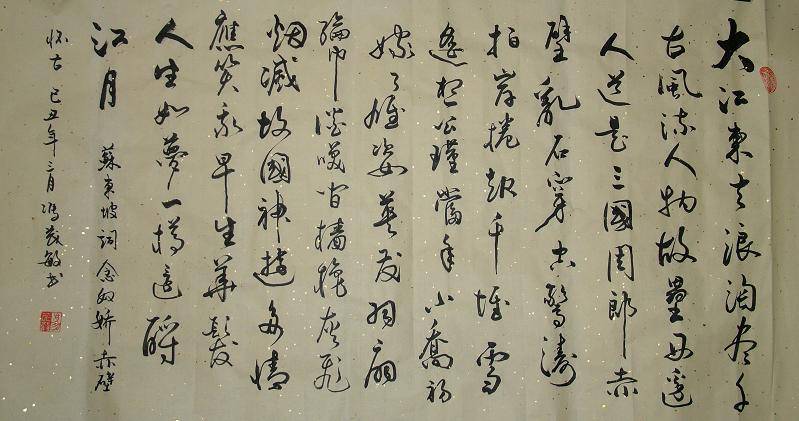 大江東去浪淘尽千
古風流人物故壘西邊
人道是三國周郎赤
壁乱石穿空驚濤
拍岸捲起千堆雪
遥想公瑾當年小喬初
嫁了雄姿英发羽扇
綸巾談笑间檣櫓灰飛
烟滅故國神遊多情
應笑我早生華髮
人生如夢一樽還酹
江月 蘇東坡詞 念奴嬌 赤壁
怀古 己丑年三月冯敏书